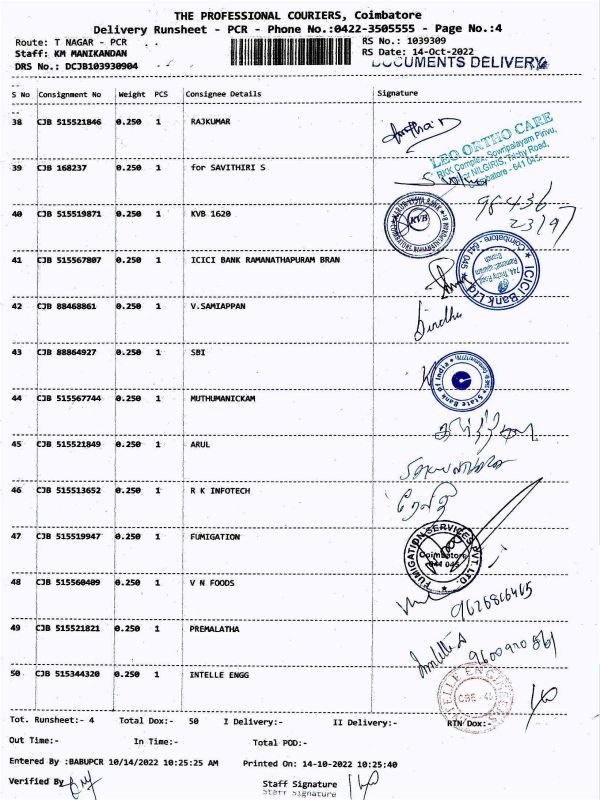 THE PROFESSIONAL COURIERS, Coimbatore
Delivery Runsheet - PCR - Phone No.:0422-3505555 - Page No.:4
Route: T NAGAR - PCR
RS No.: 1039309
Staff: KM MANIKANDAN
RS Date: 14-Oct-2022
DRS No.: DCJB103930904
DOCUMENTS DELIVERY
S No Consignment No Weight PCS Consignee Details Signature
38 CJB 515521846 0.250 1 RAJKUMAR
LEO ORTHO CARE
RKK Complex, Sowripalayam Pirivu,
NILGIRIS, Trichy Road,
Coimbatore - 641 045.
39 CJB 168237 0.250 1 for SAVITHIRI S
98436
23197
40 CJB 515519871 0.250 1 KVB 1620
KVB
41 CJB 515567807 0.250 1 ICICI BANK RAMANATHAPURAM BRAN
ICICI Bank Ltd. Coimbatore 641 045
Ramanathapuram
Branch
42 CJB 88468861 0.250 1 V.SAMIAPPAN
Sindhu
43 CJB 88864927 0.250 1 SBI
State Bank of India
44 CJB 515567744 0.250 1 MUTHUMANICKAM
45 CJB 515521849 0.250 1 ARUL
46 CJB 515513652 0.250 1 R K INFOTECH
47 CJB 515519947 0.250 1 FUMIGATION
FUMIGATION SERVICES PVT. LTD.
Coimbatore
641 045
48 CJB 515560409 0.250 1 V N FOODS
9626816465
49 CJB 515521821 0.250 1 PREMALATHA
9600920561
50 CJB 515344320 0.250 1 INTELLE ENGG
CBE - 45
Tot. Runsheet:- 4 Total Dox:- 50 I Delivery:- II Delivery:- RTN Dox:-
Out Time:- In Time:- Total POD:-
Entered By :BABUPCR 10/14/2022 10:25:25 AM Printed On: 14-10-2022 10:25:40
Verified By
Staff Signature
Staff Signature